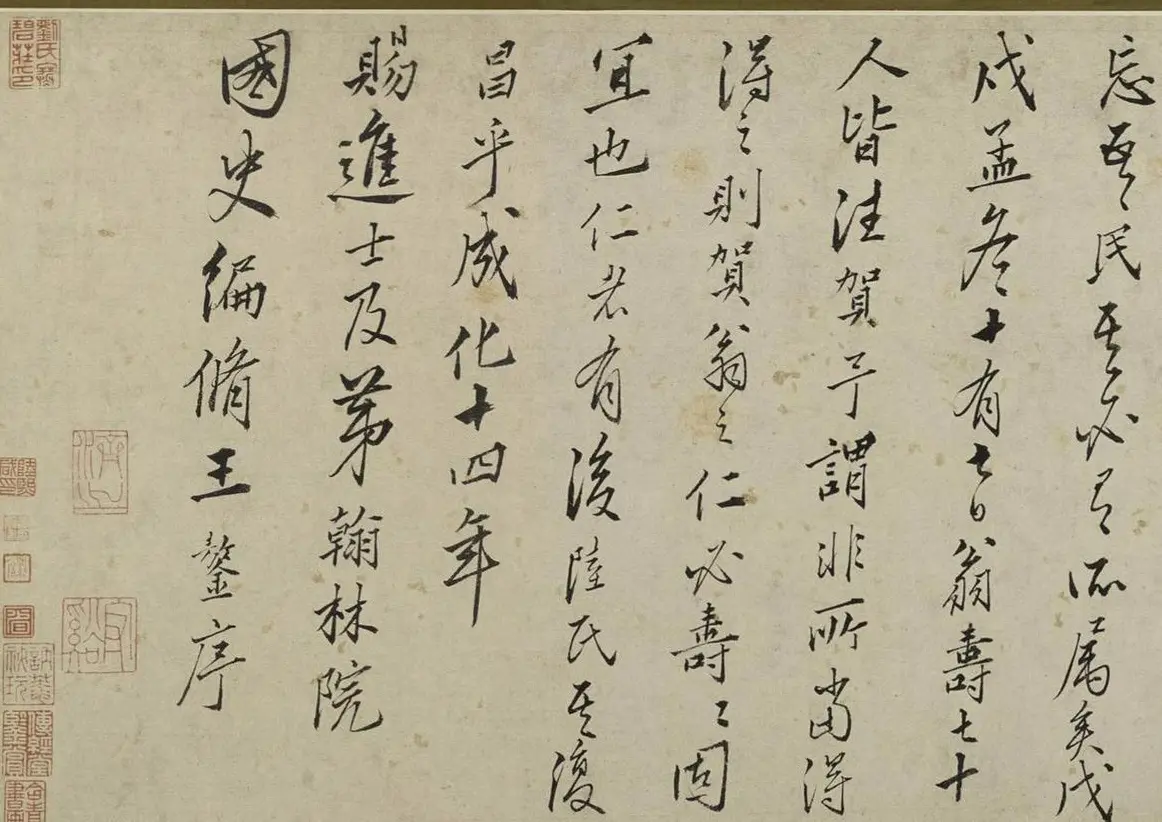 忘吾民其必有所属矣戊
戌孟冬十有七日翁壽七十
人皆往賀予謂非所當得
得之則賀翁之仁必壽〻固
宜也仁者有後陸氏其復
昌乎成化十四年
賜進士及第翰林院
國史編脩王鏊序
劉氏寒碧莊印